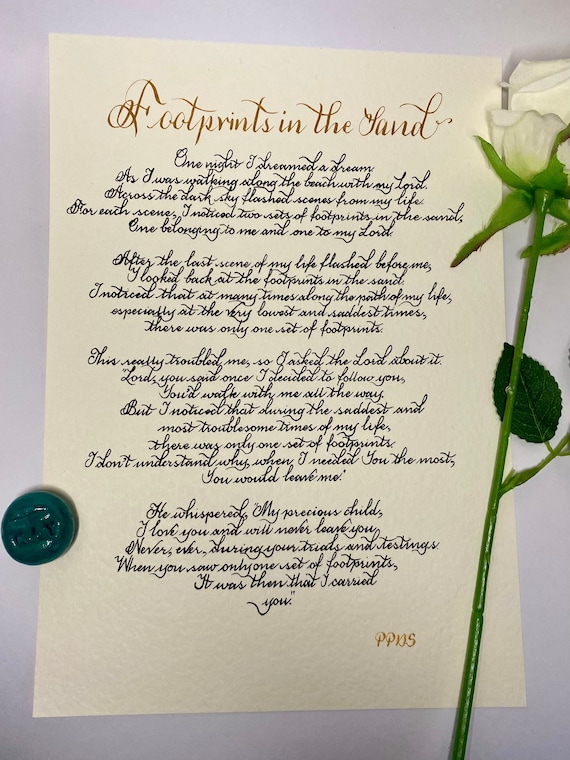 Footprints in the Sand
One night I dreamed a dream
As I was walking along the beach with my Lord.
Across the dark sky flashed scenes from my life.
For each scene, I noticed two sets of footprints in the sand,
One belonging to me and one to my Lord.
After the last scene of my life flashed before me,
I looked back at the footprints in the sand.
I noticed that at many times along the path of my life,
especially at the very lowest and saddest times,
there was only one set of footprints.
This really troubled me, so I asked the Lord about it.
"Lord, you said once I decided to follow you,
You'd walk with me all the way.
But I noticed that during the saddest and
most troublesome times of my life,
there was only one set of footprints.
I don't understand why, when I needed You the most,
You would leave me."
He whispered, "My precious child,
I love you and will never leave you
Never, ever, during your trials and testings.
When you saw only one set of footprints,
It was then that I carried
you."
PPDS